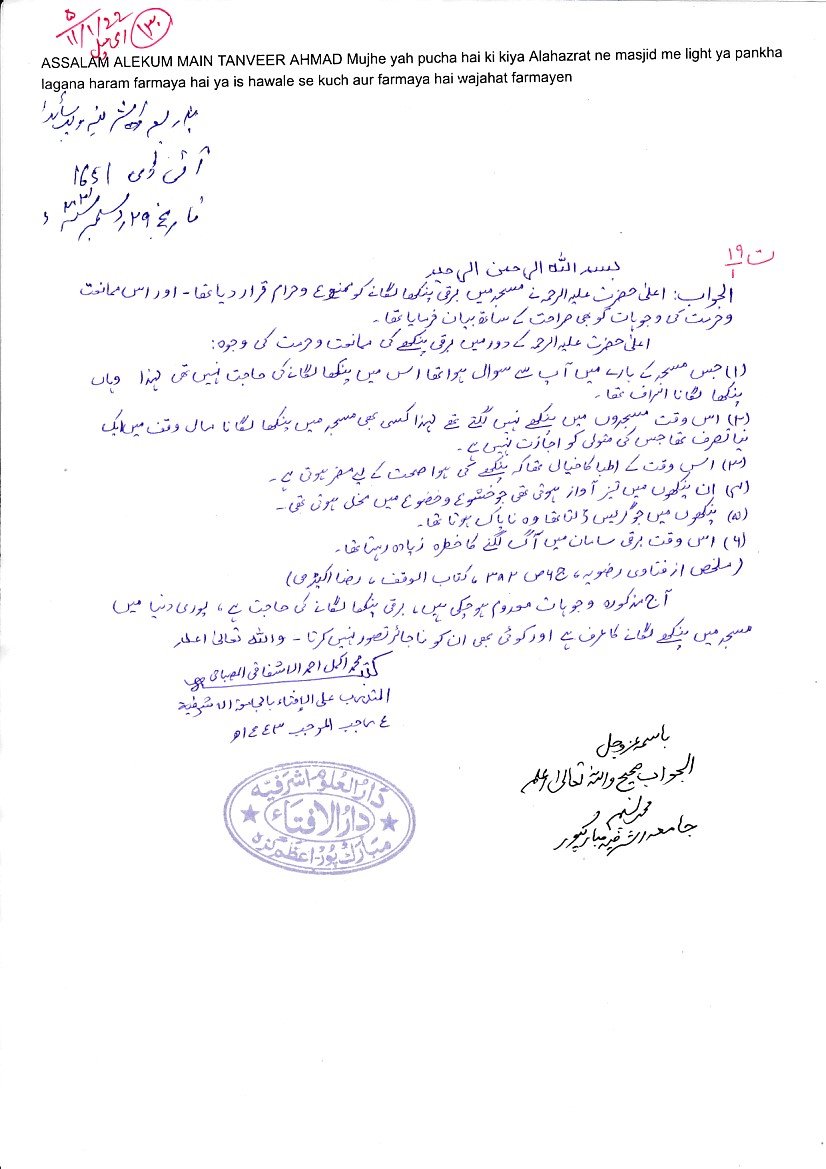 ۱۳۰
ای میل
۱۱/۱/۲۲
ASSALAM ALEKUM MAIN TANVEER AHMAD Mujhe yah pucha hai ki kiya Alahazrat ne masjid me light ya pankha
lagana haram farmaya hai ya is hawale se kuch aur farmaya hai wajahat farmayen
آئی ڈی 1651
تاریخ ۲۹ دسمبر
ت ۱۹/۱
بسم اللہ الرحمن الرحیم
الجواب: اعلیٰ حضرت علیہ الرحمہ نے مسجد میں برقی پنکھا لگانے کو ممنوع و حرام قرار دیا تھا - اور اس ممانعت
و حرمت کی وجوہات کو بھی صراحت کے ساتھ بیان فرمایا تھا۔
اعلیٰ حضرت علیہ الرحمہ کے دور میں برقی پنکھے کی ممانعت و حرمت کی وجوہ:
(۱) جس مسجد کے بارے میں آپ سے سوال ہوا تھا اس میں پنکھا لگانے کی حاجت نہیں تھی لہذا وہاں
پنکھا لگانا اسراف تھا۔
(۲) اس وقت مسجدوں میں پنکھے نہیں لگتے تھے لہذا کسی بھی مسجد میں پنکھا لگانا مال وقف میں ایک
نیا تصرف تھا جس کی متولی کو اجازت نہیں ہے۔
(۳) اس وقت کے اطبا کا خیال تھا کہ پنکھے کی ہوا صحت کے لیے مضر ہوتی ہے۔
(۴) ان پنکھوں میں تیز آواز ہوتی تھی جو خشوع و خضوع میں مخل ہوتی تھی۔
(۵) پنکھوں میں جو گریس ڈلتا تھا وہ ناپاک ہوتا تھا۔
(۶) اس وقت برقی سامان میں آگ لگنے کا خطرہ زیادہ رہتا تھا۔
(ملخص از فتاویٰ رضویہ، ج ۶ ص ۳۸۲، کتاب الوقف، رضا اکیڈمی)
آج مذکورہ وجوہات معدوم ہو چکی ہیں، برقی پنکھا لگانے کی حاجت ہے، پوری دنیا میں
مسجد میں پنکھے لگانے کا عرف ہے اور کوئی بھی ان کو ناجائز تصور نہیں کرتا - واللہ تعالیٰ اعلم
کتبہ محمد اکمل احمد الاشفاقی المصباحی
المتدرب علی الإفتاء بالجامعة الاشرفیة
٤ رجب المرجب ١٤٤٣ھ
باسمہ عزوجل
الجواب صحیح واللہ تعالیٰ اعلم
محمد نسیم
جامعہ اشرفیہ مبارکپور
دارالعلوم اشرفیہ
دارالافتاء
مبارک پور۔ اعظم گڑھ